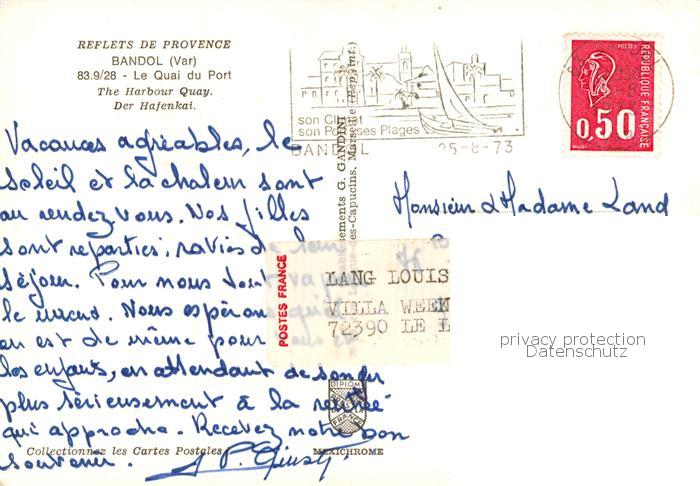 REFLETS DE PROVENCE
BANDOL (Var)
83.9/28 - Le Quai du Port
The Harbour Quay.
Der Hafenkai.
son Climat
son Port ses Plages
BANDOL 25-8-73
POSTES
REPUBLIQUE FRANÇAISE
0,50
Vacances agréables, le
soleil et la chaleur sont
au rendez vous. Nos filles
sont reparties, ravies de leur
séjour. Pour nous tout va
le mieux. Nous espérons qu'il
en est de même pour
les enfants, en attendant de songer
plus sérieusement à la rentrée
qui approche. Recevez notre bon
souvenir.
Monsieur et Madame Land
POSTES FRANCE
LANG LOUIS
VILLA WEEK
72390 LE L
privacy protection
Datenschutz
ements G. GANDINI
des-Capucins, Marseille
DIPLOM
FRANCE
Collectionnez les Cartes Postales
MEXICHROME